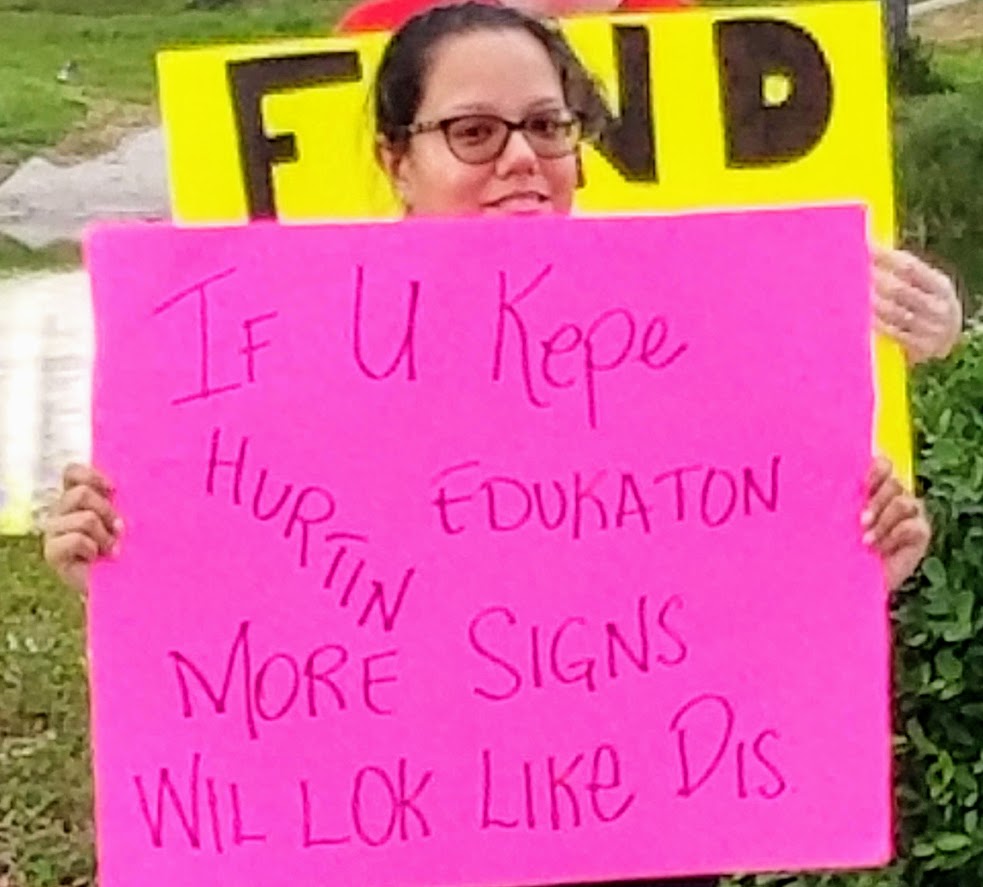 F ND
If U Kepe
HURTIN EDUKATON
MORE SIGNS
WIL LOK LIKe DIS.